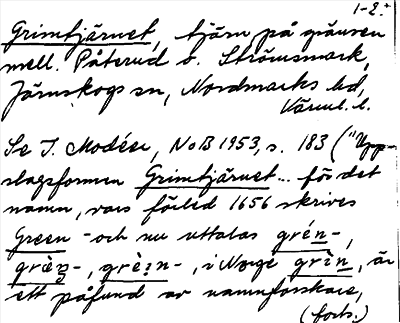 1-2.+
Grimtjärnet, tjärn på gränsen
mell. Påterud o. Strömsmark,
Järnskogs sn, Nordmarks hd,
Värml. l.
Se I. Modéer, NoB 1953, s. 183 ("Upp-
slagsformen Grimtjärnet... för det
namn, vars förled 1656 skrives
Green- och nu uttalas grén-,
grèn-, grè:n-, i Norge grèn, är
ett påfund av namnforskare,
(forts.)